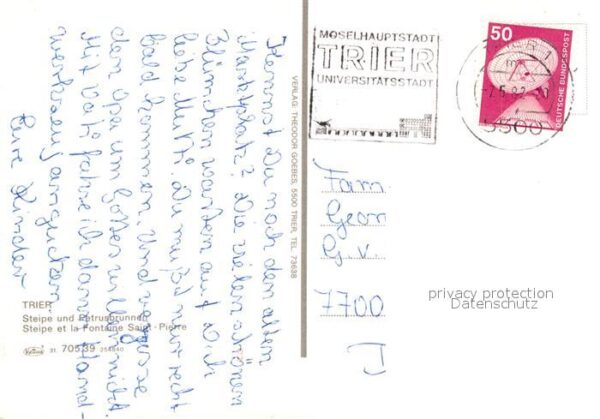 Kennst Du noch den alten
Marktplatz? Die vielen schönen
Blümchen warten auf Dich
liebe Mutti. Du mußt nur recht
bald kommen. Und vergesse
den Opa um Gottes willen nicht.
Mit Vati fahre ich dann Hand-
werkzeug angucken.
Eure Kinder
TRIER
Steipe und Petrusbrunnen
Steipe et la Fontaine Saint-Pierre
31 705 39 254840
VERLAG: THEODOR GOEBES, 5500 TRIER, TEL. 73638
MOSELHAUPTSTADT
TRIER
UNIVERSITÄTSSTADT
5500
50
DEUTSCHE BUNDESPOST
Fam.
Georg
G. v.
7700
privacy protection
Datenschutz